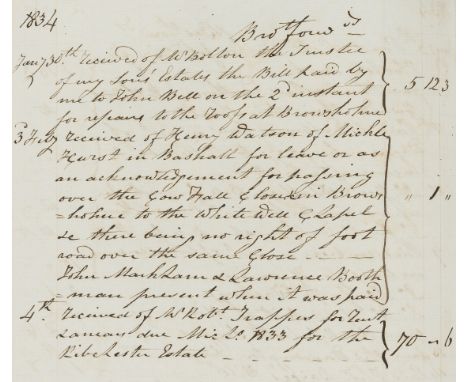 1834
Bro.t forw.ds
Jany 30.th received of Mr Bolton the Trustee
of my Sons Estates the Bill paid by
me to John Bell on the 2.d instant 5 12 3
for repairs to the roofs at Browsholme
3.d Feby received of Henry Watson of Mickle
Hurst in Bashall for leave or as
an acknowledgement for passing
over the Cow Hall Close in Brows
=holme to the White Well Chapel " 1 "
&c there being no right of foot
road over the same Close
John Markham & Lawrence Booth
=man present when it was paid
4.th received of Mr Rob.t Trappes for rent
& arrears due Mic.ls 1833 for the 70 " 6
Ribchester Estate